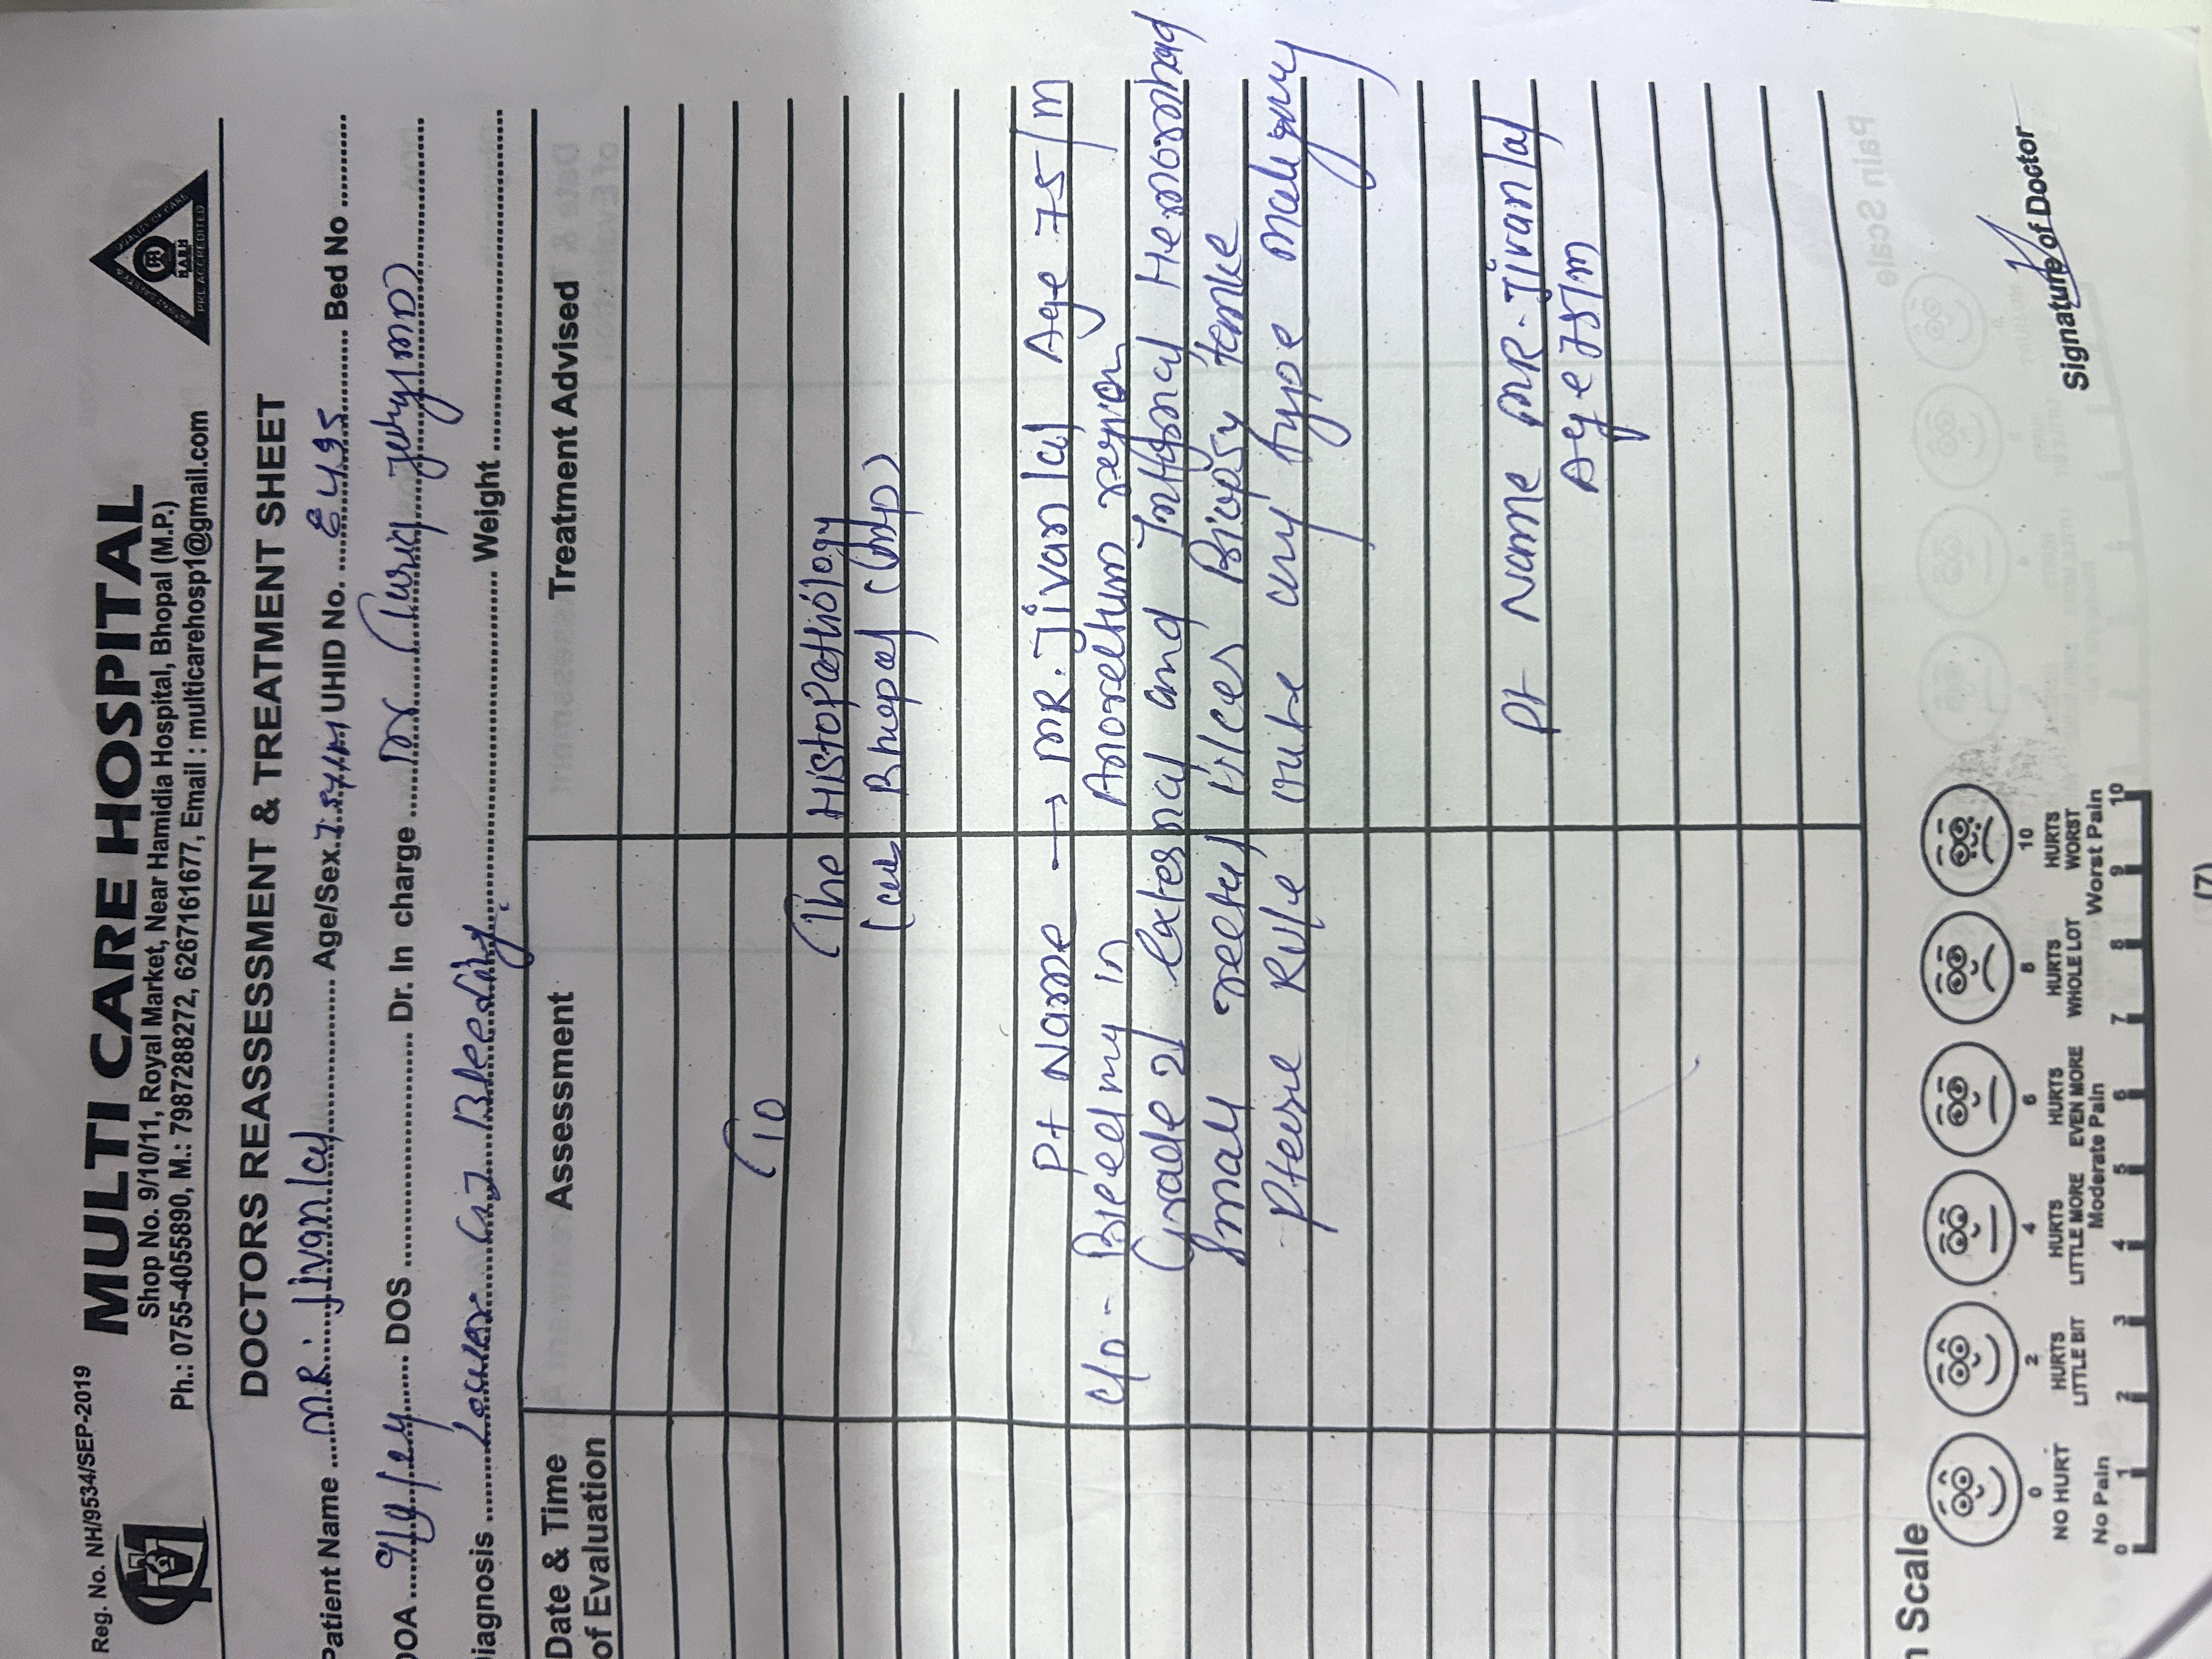 Reg. No. NH/9534/SEP-2019
MULTI CARE HOSPITAL
Shop No. 9/10/11, Royal Market, Near Hamidia Hospital, Bhopal (M.P.)
Ph.: 0755-4055890, M.: 7987288272, 6267161677, Email : multicarehosp1@gmail.com
DOCTORS REASSESSMENT & TREATMENT SHEET
Patient Name MR. Jivanlal Age/Sex UHID No. Bed No
DOA DOS Dr. In charge Dr
Diagnosis Lower G.I Bleeding Weight
Date & Time of Evaluation
Assessment
Treatment Advised
To
The Histopathology
Bhopal (mp)
Pt Name → MR. Jivanlal Age 75/m
c/o - Bleeding in Anorectum region
Grade 2 External and Internal
small Biopsy
Please Rule oute any type
Pt Name MR. Jivanlal
Age 75/m
n Scale
0
NO HURT
2
HURTS LITTLE BIT
4
HURTS LITTLE MORE
6
HURTS EVEN MORE
8
HURTS WHOLE LOT
10
HURTS WORST
No Pain
Moderate Pain
Worst Pain
0 1 2 3 4 5 6 7 8 9 10
Signature of Doctor
(7)